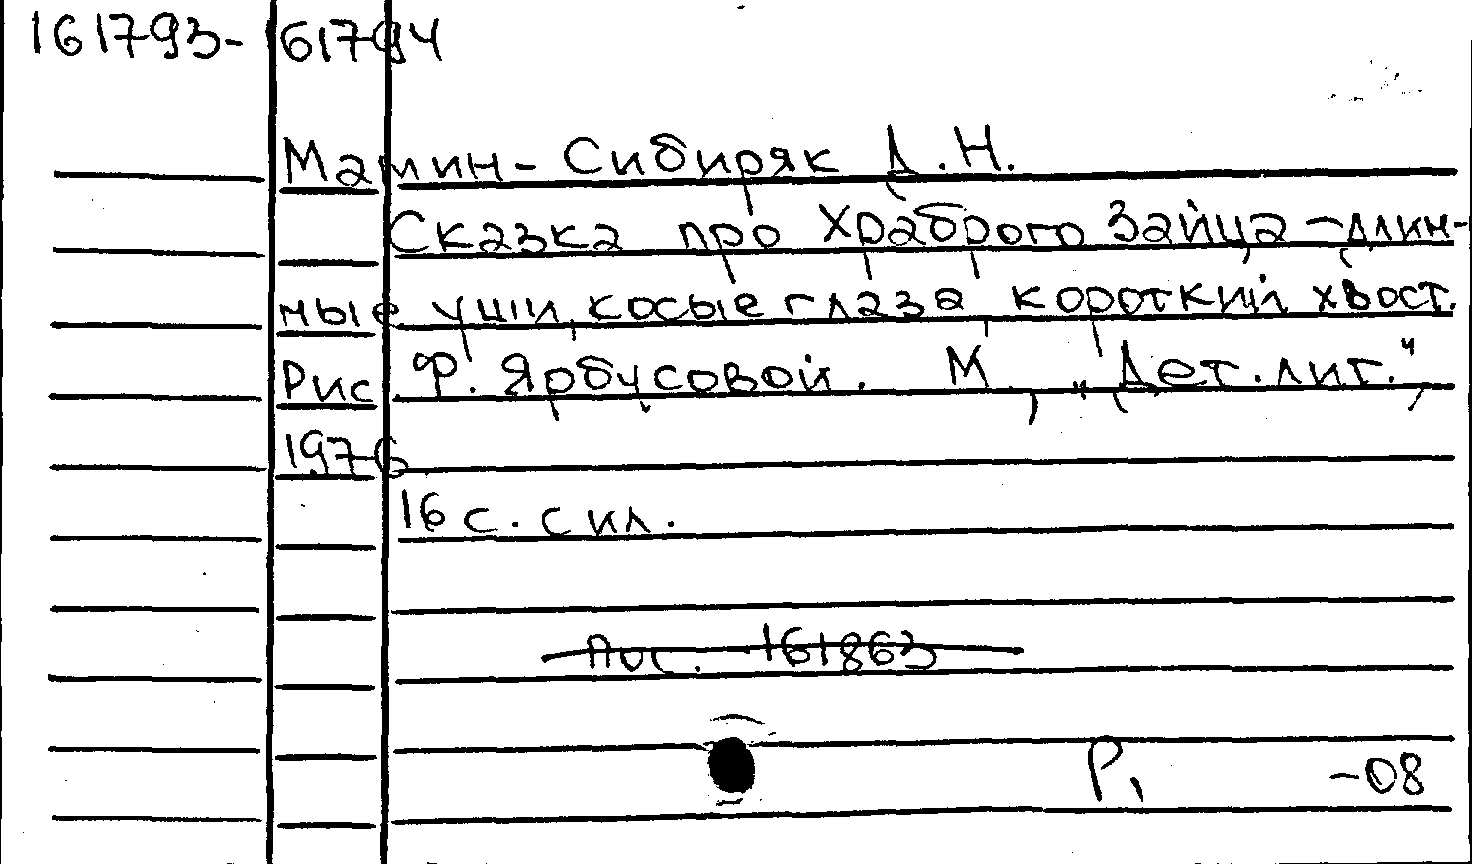 161793-161794
Мамин-Сибиряк Д.Н.
Сказка про Храброго Зайца-длин-
ные уши, косые глаза, короткий хвост.
Рис. Ф. Ярбусовой. М., "Дет. лит.",
1976
16 с. с ил.
161863
Р1 -08